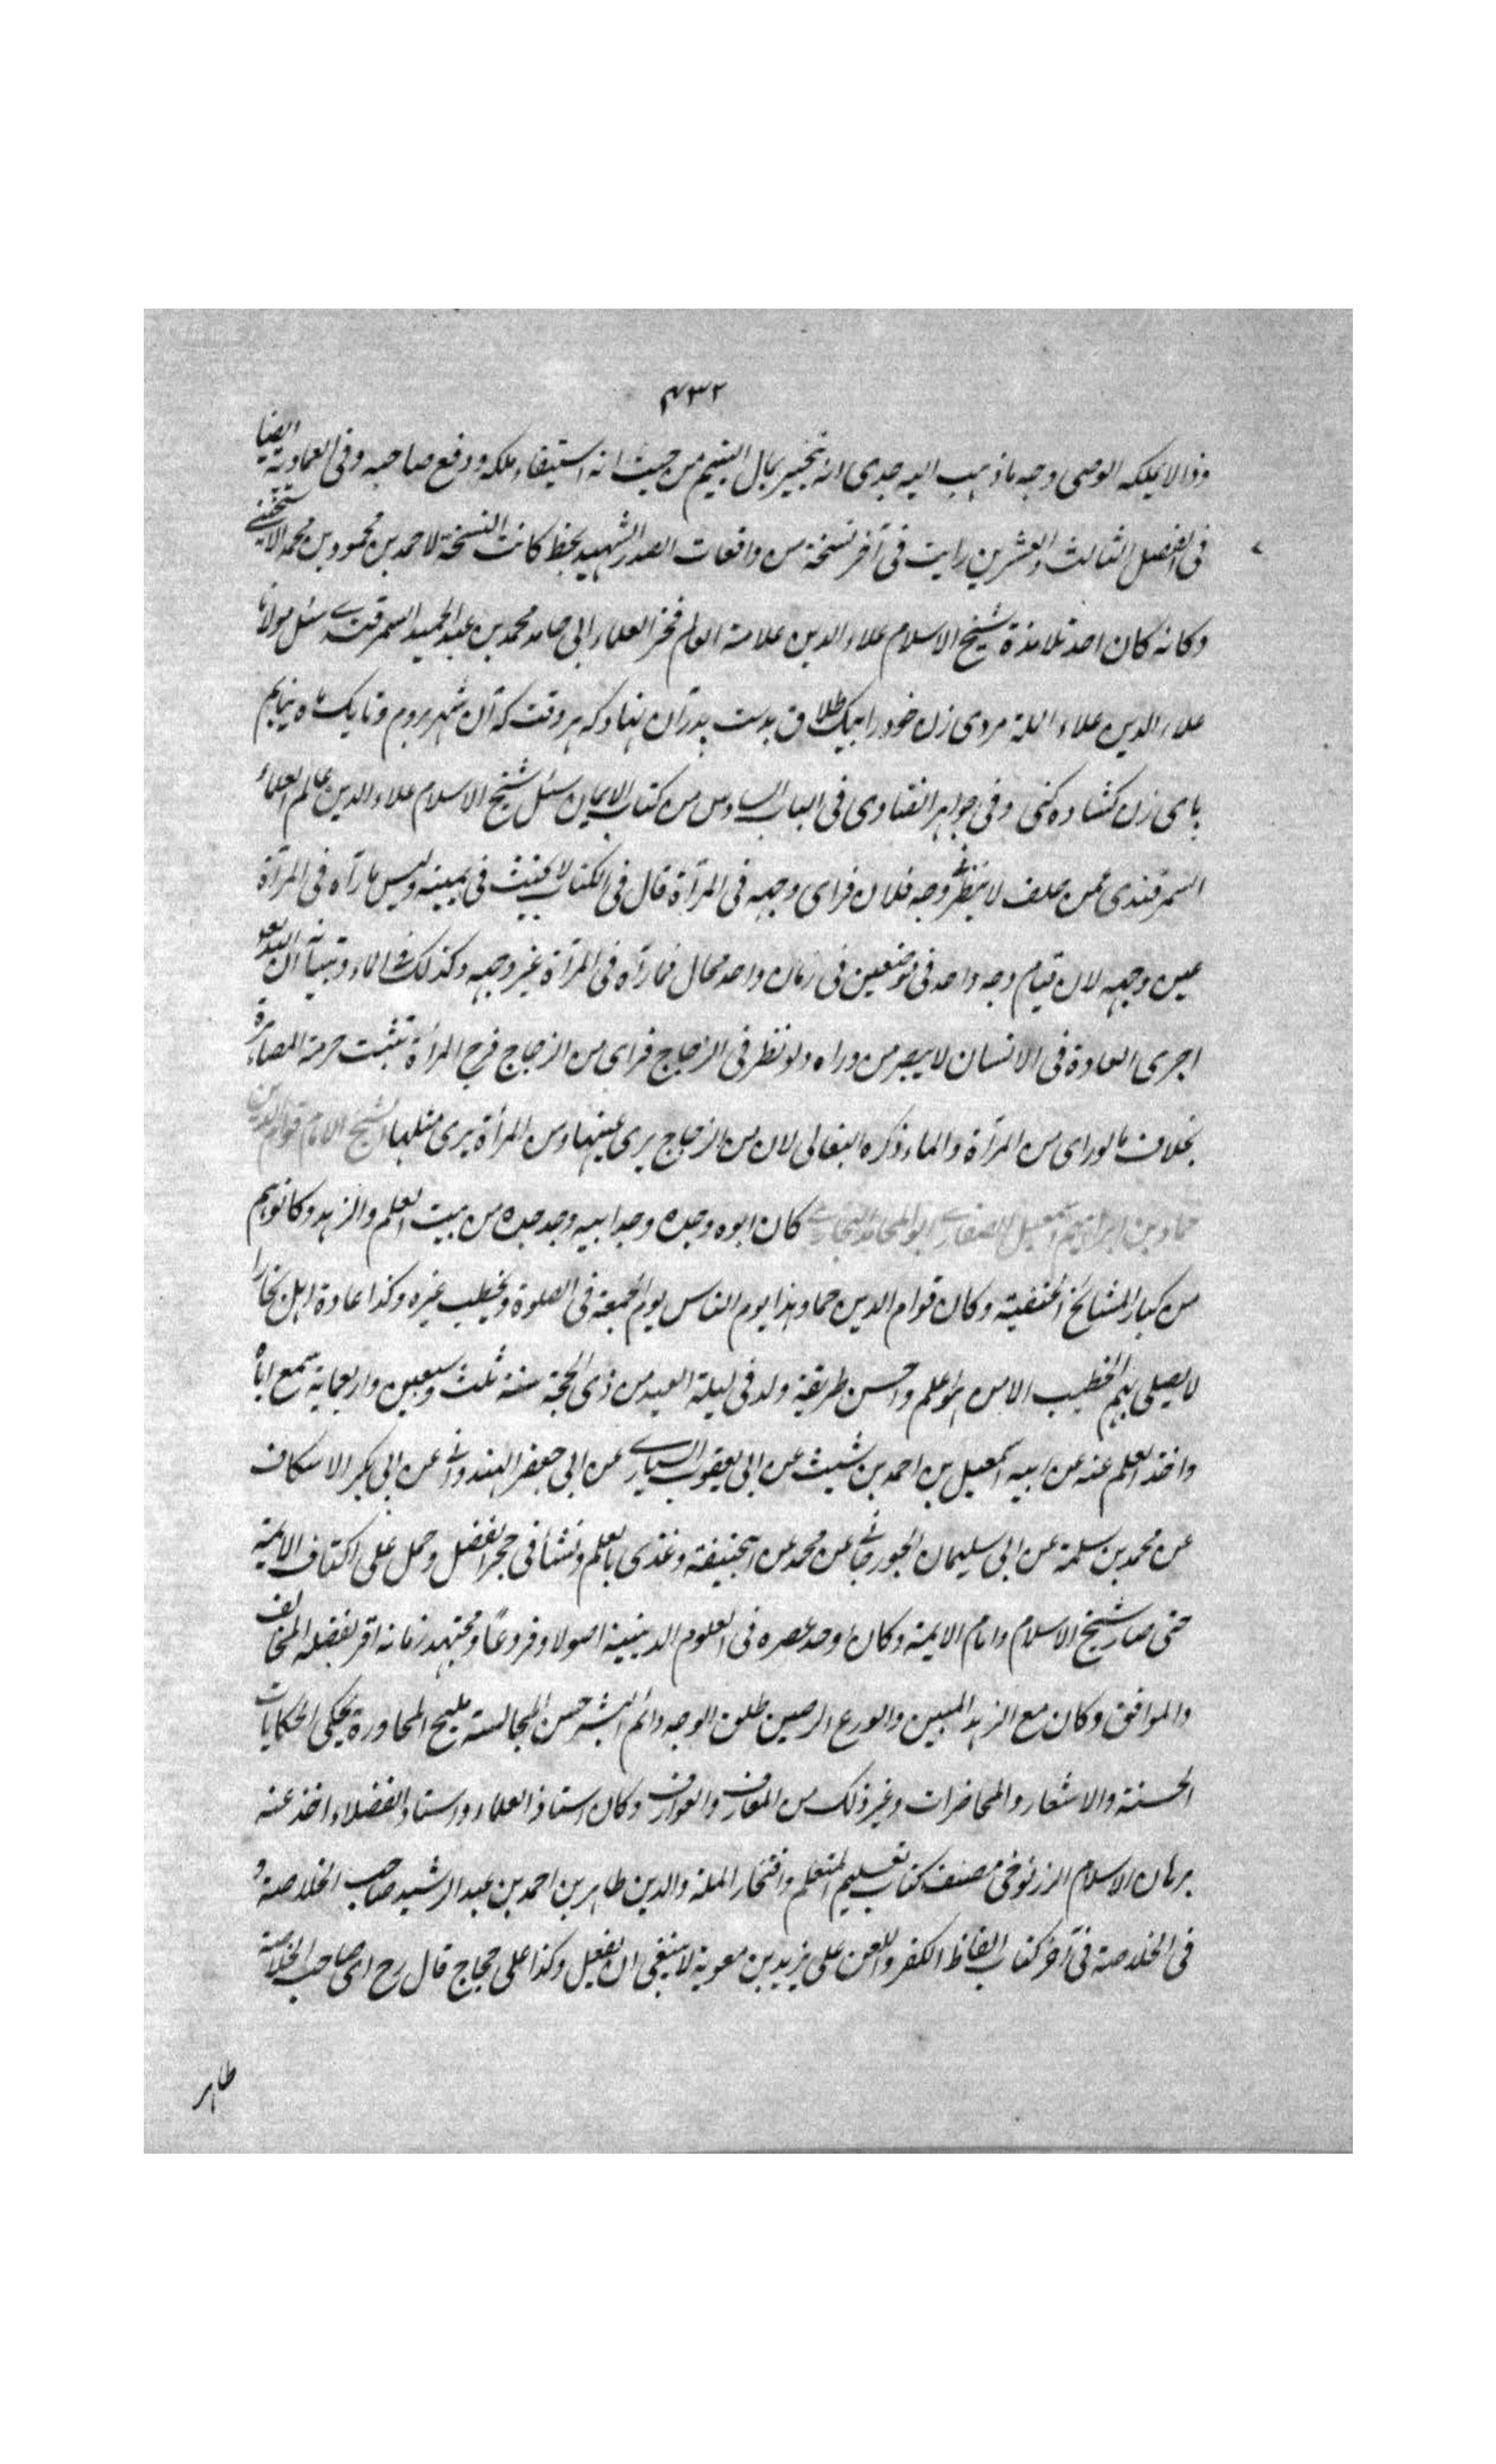 ۴۳۲
وذا لا يملكه الوصى وجه ما ذهب اليه جدى انه تخيير بمال اليتيم من حيث انه استيفاء ملكه ودفع صاحبه وفى العمادية ايضا
فى الفصل الثالث والعشرين رايت فى آخر نسخة من واقعات الصدر الشهيد بخط كانت النسخة لاحمد بن محمود بن محمد
وكانه كان احد تلامذة شيخ الاسلام علاء الدين علامة العالم فخر العلماء ابى حامد محمد بن عبد الحميد السمرقندى سئل مولانا
علاء الدين علاء الملة مردى زن خود را بيك طلاق بدست پدر آن نهاد كه هر وقت كه از آن شهر بروم وتا يك ماه نيايم
پاى زن كشاده كنى وفى جواهر الفتاوى فى الباب السادس من كتاب الايمان سئل شيخ الاسلام علاء الدين عالم العلماء
السمرقندى عمن حلف لا ينظر وجه فلان فراى وجهه فى المرآة قال فى الكتاب لا يحنث فى يمينه وليس ما رآه فى المرآة
عين وجهه لان قيام وجه واحد فى موضعين فى زمان واحد محال فما رآه فى المرآة غير وجهه وكذلك فى الماء وتبيانه ان الله تع
اجرى العادة فى الانسان لا يبصر من وراه ولو نظر فى الزجاج فراى من الزجاج فرج المرأة تثبت حرمة المصاهرة
بخلاف ما لو راى من المرآة والماء ذكره البقالى لان من الزجاج يرى عينها ومن المرآة يرى مثلها الشيخ الامام قوام الدين
حماد بن ابراهيم بن اسمعيل الصفارى ابو المحامد البخارى كان ابوه وجده وجد ابيه وجد جده من بيت العلم والزهد وكانوا هم
من كبار المشائخ الحنفية وكان قوام الدين حماد هذا يوم الناس يوم الجمعة فى الصلوة ويخطب غيره وكذا عادة اهل بخارا
لا يصلى بهم الخطيب الا من هو اعلم واحسن طريقة ولد فى ليلة العيد من ذى الحجة سنة ثلث وسبعين واربعماية سمع اباه
واخذ العلم عنه عن ابيه اسمعيل بن احمد بن شيث عن ابى يعقوب السيارى عن ابى جعفر الهندوانى عن ابى بكر الاسكاف
عن محمد بن سلمة عن ابى سليمان الجوزجانى عن محمد عن ابيحنيفة وغذى بالعلم ونشأ فى حجر الفضل وحمل على اكتاف الايمة
حتى صار شيخ الاسلام وامام الايمة وكان اوحد عصره فى العلوم الدينية اصولا وفروعًا ومجتهد زمانه اقر بفضله المخالف
والموافق وكان مع الزهد المبين والورع الرصين طلق الوجه دائم البشر حسن المجالسة مليح المحاورة يحكى الحكايات
الحسنة والاشعار والمحاضرات وغير ذلك من المعارف والعوارف وكان استاذ العلماء واستاد الفضلاء اخذ عنه
برهان الاسلام الزرنوخى مصنف كتاب تعليم المتعلم وافتخار الملة والدين طاهر بن احمد بن عبد الرشيد صاحب الخلاصة و
فى الخلاصة فى آخر كتاب الفاظ الكفر واللعن على يزيد بن معوية لا ينبغى ان يفعل وكذا على حجاج قال رح اى صاحب الخلاصة
طاهر